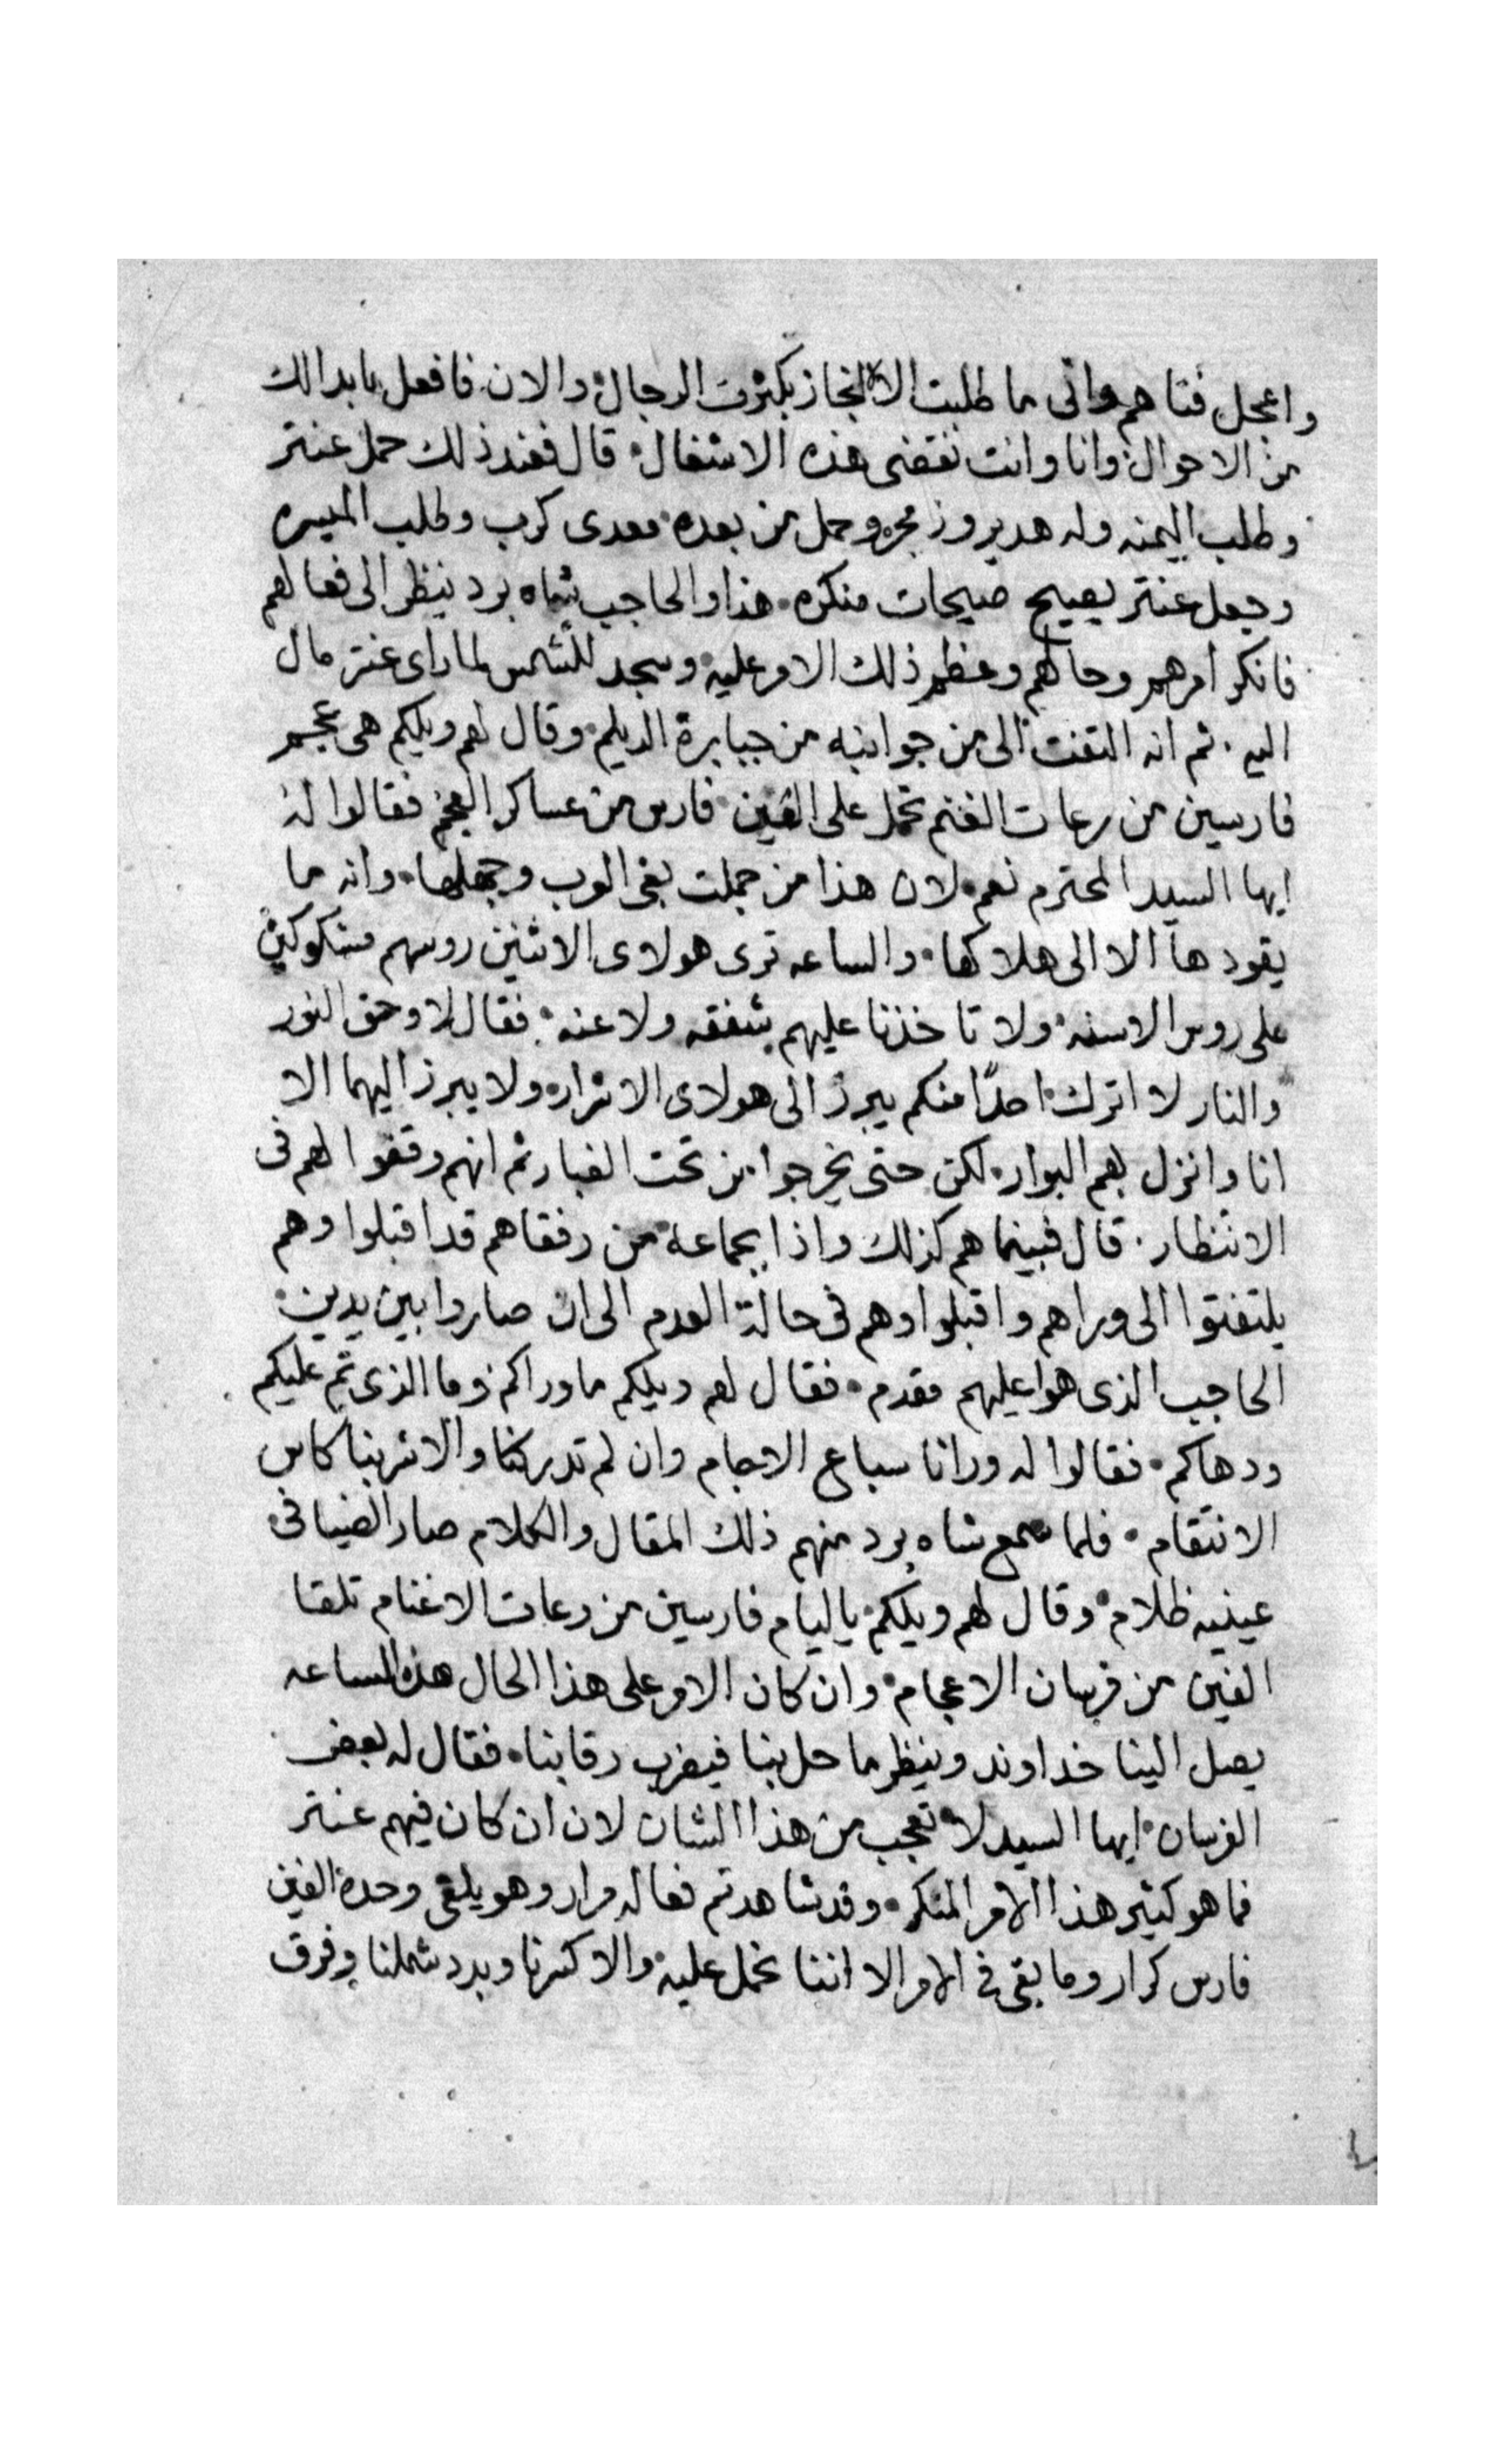 واعجل فناهم واني ما طلبت الا الانجاز بكثرت الرجال والان فافعل ما بدالك
من الاحوال وانا وانت نقضى هذه الاشغال قال فعند ذلك حمل عنتر
وطلب اليمنه وله هدير وزمجره وحمل من بعده معدى كرب وطلب الميسره
وجعل عنتر يصيح صيحات منكره هذا والحاجب شاه برد ينظر الى فعالهم
فانكر امرهم وحالهم وعظم ذلك الامر عليه وسجد للشمس لما راى عنتر مال
اليه ثم انه التفت الى من جوانبه من جبابرة الديلم وقال لهم ويلكم هى عجم
فارسين من رعات الغنم تحمل على الفين فارس من عساكر العجم فقالوا له
ايها السيد المحترم نعم لان هذا من جملت بغى العرب وجهلها وانه ما
يقودها الا الى هلاكها والساعه ترى هولاى الاثنين روسهم مشكوكين
على روس الاسنه ولا تاخذنا عليهم شفقه ولا عنه فقال لا وحق النور
والنار لا اترك احدًا منكم يبرز الى هولاى الاشرار ولا يبرز اليهما الا
انا وانزل بهم البوار لكن حتى يخرجوا من تحت الغبار ثم انهم وقفوا لهم فى
الانتظار قال فبينما هم كذلك واذا بجماعة من رفقاهم قد اقبلوا وهم
يلتفتوا الى وراهم واقبلوا وهم فى حالة العدم الى ان صاروا بين يدين
الحاجب الذى هوا عليهم مقدم فقال لهم ويلكم ما وراكم وما الذى تم عليكم
ودهاكم فقالوا له ورانا سباع الاجام وان لم تدركنا والا شربنا كاس
الانتقام فلما سمع شاه برد منهم ذلك المقال والكلام صار الضيا فى
عينيه ظلام وقال لهم ويلكم يا ليام فارسين من رعات الاغنام تلقا
الفين من فرسان الاعجام وان كان الامر على هذا الحال هذه الساعه
يصل الينا خداوند وينظر ما حل بنا فيضرب رقابنا فقال له بعض
الفرسان ايها السيد لا تعجب من هذا الشان لان ان كان فيهم عنتر
فما هو كثير هذا الامر المنكر وقد شاهدتم فعاله مرار وهو يلقى وحدة الفين
فارس كرار وما بقى فى الامر الا اننا نحمل عليه والا كسرنا وبدد شملنا وفرق